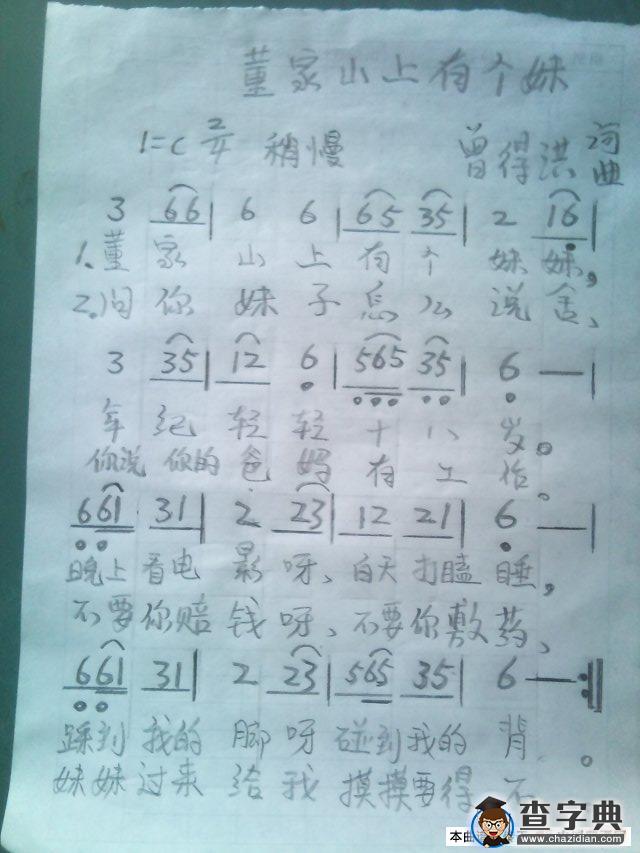 董家山上有个妹
1=C 2/4 稍慢 曾得洪 词曲
3 66 | 6 6 | 65 35 | 2 16 |
1.董家 山上 有个 妹妹,
2.问你 妹子 怎么 说舍、
3 35 | 12 6 | 565 35 | 6 — |
年纪 轻轻 十八 岁。
你说 你的 爸妈 有工作。
661 31 | 2 23 | 12 21 | 6 — |
晚上看电 影呀、白天打瞌 睡,
不要你赔 钱呀、不要你敷 药、
661 31 | 2 23 | 565 35 | 6 — :||
踩到我的 脚呀 碰到我的 背。
妹妹过来 给我 摸摸要得 不
本曲
查字典
www.chazidian.com